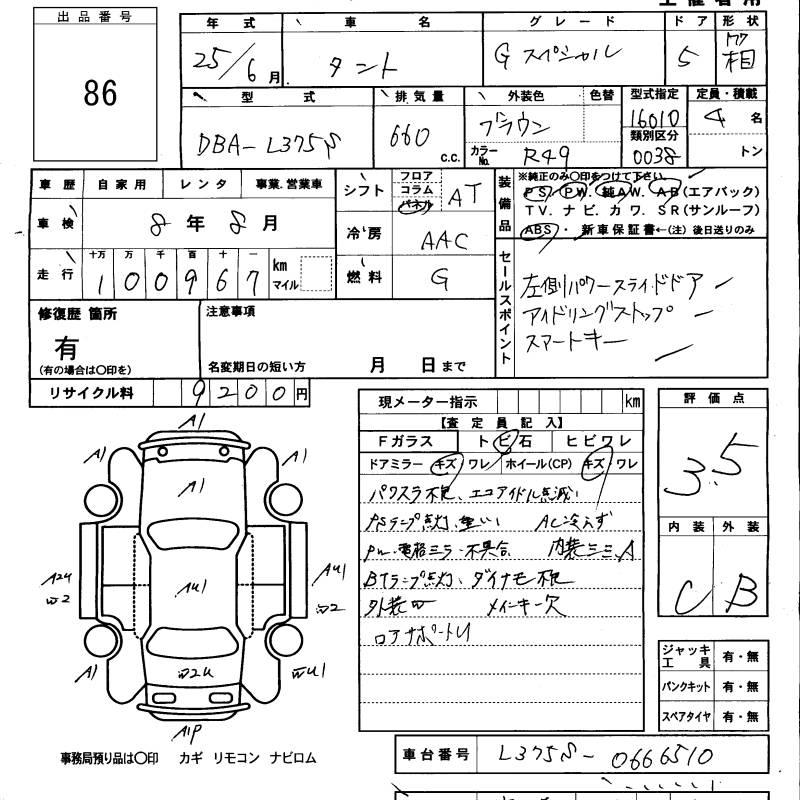 出品番号
86
年式 車名 グレード ドア 形状
25/6月 タント Gスペシャル 5 箱
型式 排気量 外装色 色替 型式指定 定員・積載
DBA-L375S 660 c.c. ブラウン 16010 4名
カラーNo. R49 類別区分 0038 トン
車歴 自家用 レンタ 事業.営業車
車検 8年8月
走行 十万 万 千 百 十 一
100967 km マイル
シフト フロア コラム パネル AT
冷房 AAC
燃料 G
装備品 ※純正のみ○印をつけて下さい。
PS・PW.純AW.AB(エアバック)
TV.ナビ.カワ.SR(サンルーフ)
ABS・新車保証書←(注)後日送りのみ
セールスポイント
左側パワースライドドア
アイドリングストップ
スマートキー
修復歴 箇所
有
(有の場合は○印を)
注意事項
名変期日の短い方 月 日まで
リサイクル料 9200円
現メーター指示 km
【査定員記入】
Fガラス トビ石 ヒビワレ
ドアミラー キズ ワレ ホイール(CP) キズ・ワレ
パワスラ不良、エコアイドル点滅
PSランプ点灯、重い AC冷えず
PW.電格ミラー不具合 内装シミ、A
BTランプ点灯、ダイナモ不良
外装W メインキー欠
ロアサポートU
評価点
3.5
内装 外装
C B
ジャッキ工具 有・無
パンクキット 有・無
スペアタイヤ 有・無
A1
A1 A1
A1
A2U W2 AU1 AU1 W2
A1 W2U WU1
A1P
事務局預り品は○印 カギ リモコン ナビロム
車台番号 L375S-0666510